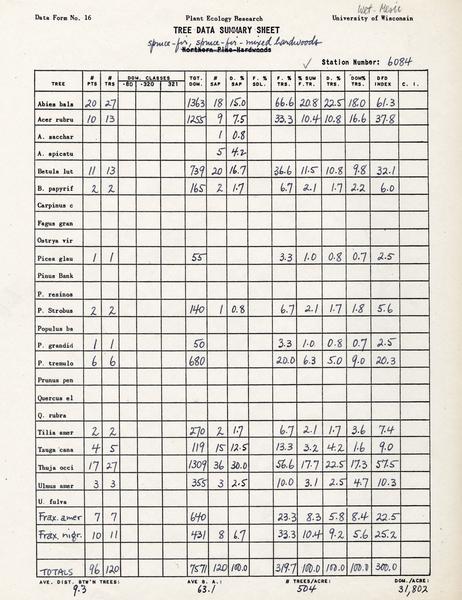 Wet-Mesic
Data Form No. 16 Plant Ecology Research University of Wisconsin
TREE DATA SUMMARY SHEET
spruce-fir, spruce-fir-mixed hardwoods
Northern Pine-Hardwoods
✓ Station Number: 6084
TREE # PTS # TRS DOM. CLASSES -80 -320 321 TOT. DOM. # SAP D. % SAP F. % SDL F. % TRS. % SUM F.TR. D. % TRS. DOM% TRS. DFD INDEX C. I.
Abies bals 20 27 1363 18 15.0 66.6 20.8 22.5 18.0 61.3
Acer rubru 10 13 1255 9 7.5 33.3 10.4 10.8 16.6 37.8
A. sacchar 1 0.8
A. spicatu 5 4.2
Betula lut 11 13 739 20 16.7 36.6 11.5 10.8 9.8 32.1
B. papyrif 2 2 165 2 1.7 6.7 2.1 1.7 2.2 6.0
Carpinus c
Fagus gran
Ostrya vir
Picea glau 1 1 55 3.3 1.0 0.8 0.7 2.5
Pinus Bank
P. resinos
P. Strobus 2 2 140 1 0.8 6.7 2.1 1.7 1.8 5.6
Populus ba
P. grandid 1 1 50 3.3 1.0 0.8 0.7 2.5
P. tremulo 6 6 680 20.0 6.3 5.0 9.0 20.3
Prunus pen
Quercus el
Q. rubra
Tilia amer 2 2 270 2 1.7 6.7 2.1 1.7 3.6 7.4
Tsuga cana 4 5 119 15 12.5 13.3 3.2 4.2 1.6 9.0
Thuja occi 17 27 1309 36 30.0 56.6 17.7 22.5 17.3 57.5
Ulmus amer 3 3 355 3 2.5 10.0 3.1 2.5 4.7 10.3
U. fulva
Frax. amer 7 7 640 23.3 8.3 5.8 8.4 22.5
Frax. nigr. 10 11 431 8 6.7 33.3 10.4 9.2 5.6 25.2
TOTALS 96 120 7571 120 100.0 319.7 100.0 100.0 100.0 300.0
AVE. DIST. BTW'N TREES: AVE B. A.: # TREES/ACRE: DOM./ACRE:
9.3 63.1 504 31,802